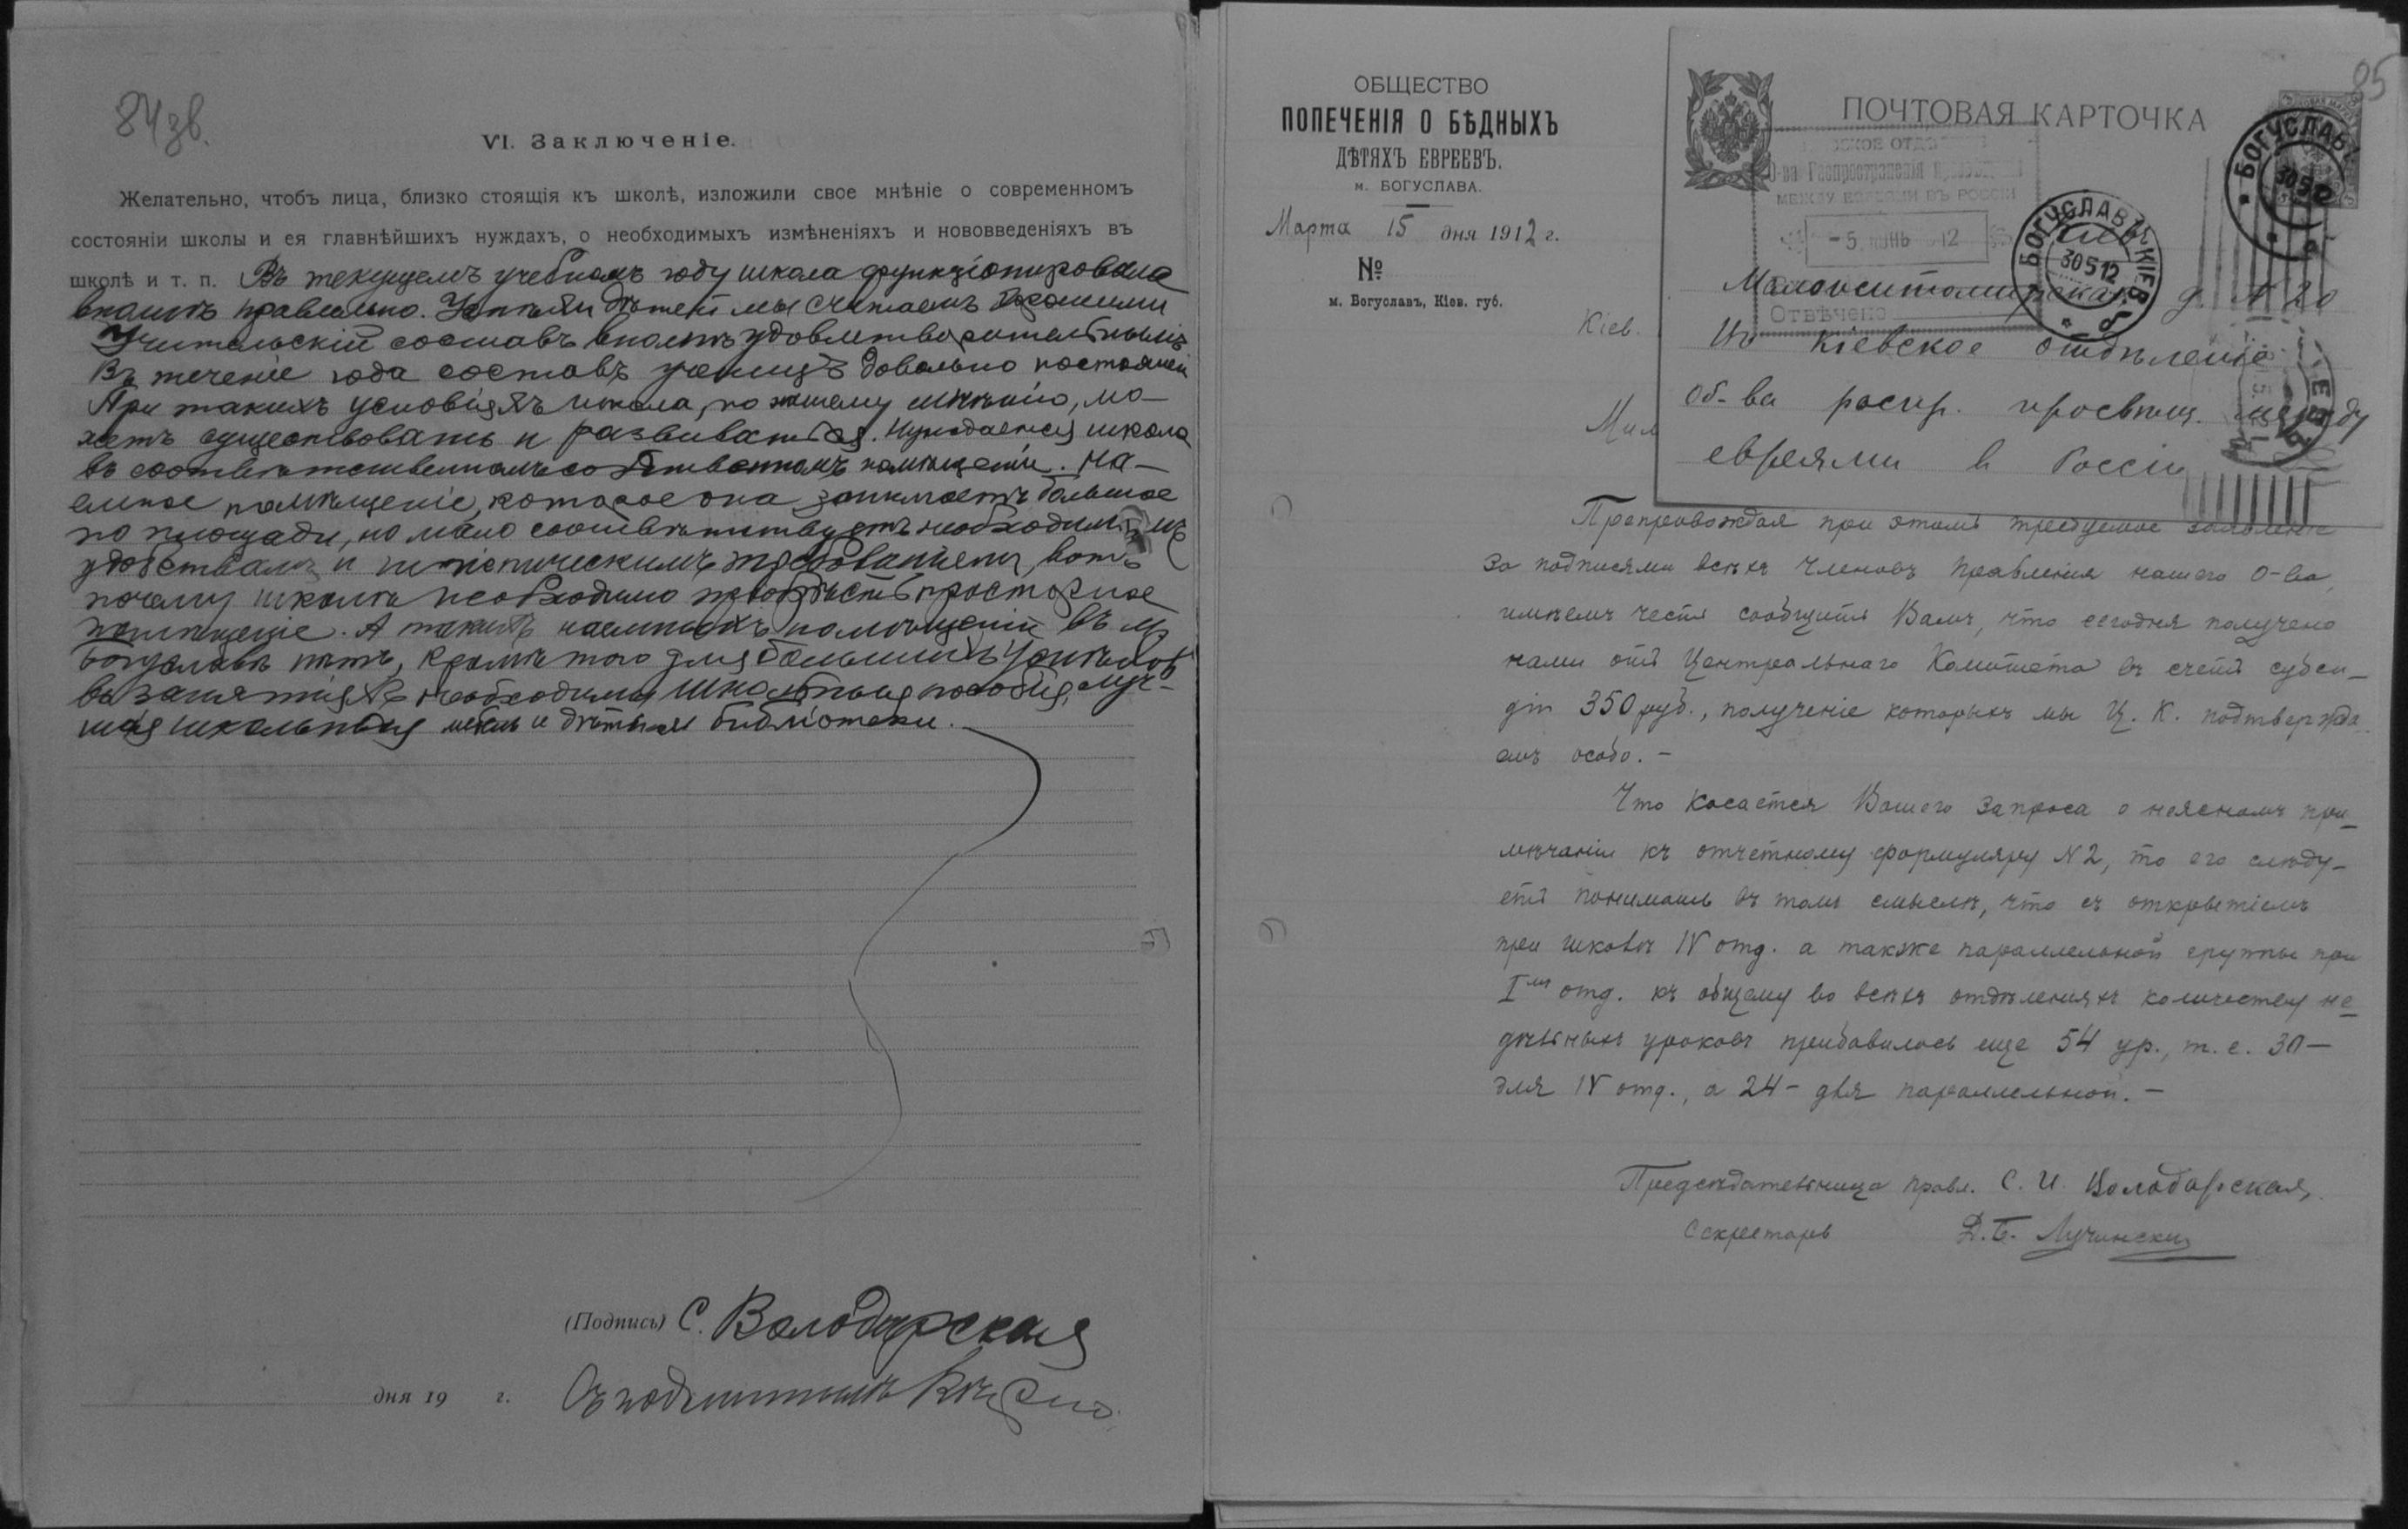 84 зв.
VI. Заключеніе.
Желательно, чтобъ лица, близко стоящія къ школѣ, изложили свое мнѣніе о современномъ
состояніи школы и ея главнѣйшихъ нуждахъ, о необходимыхъ измѣненіяхъ и нововведеніяхъ въ
школѣ и т. п. Въ текущемъ учебномъ году школа функціонировала
вполнѣ правильно. Успѣхи дѣтей мы считаемъ хорошими
Учительскій составъ вполнѣ удовлетворительнымъ
Въ теченіе года составъ училищъ довольно постояненъ
При такихъ условіяхъ школа, по нашему мнѣнію, мо-
жетъ существовать и развиваться. Нуждается школа
въ соотвѣтственномъ собственномъ помѣщеніи. На-
емное помѣщеніе, которое она занимаетъ большое
по площади, но мало соотвѣтствуетъ необходимымъ
удобствамъ и гигіеническимъ требованіямъ, вотъ
почему школѣ необходимо пріобрѣсть просторное
помѣщеніе. А такихъ наемныхъ помѣщеній въ м.
Богуславѣ нѣтъ, кромѣ того для большихъ успѣховъ
въ занятіяхъ необходимы школьныя пособія, луч-
шая школьная мебель и дѣтская библіотека.
(Подпись) С. Володарская
дня 19 г. Съ подлиннымъ вѣрно
95
ОБЩЕСТВО
ПОПЕЧЕНІЯ О БѢДНЫХЪ
ДѢТЯХЪ ЕВРЕЕВЪ.
м. БОГУСЛАВА.
Марта 15 дня 1912 г.
№
м. Богуславъ, Кіев. губ.
ПОЧТОВАЯ КАРТОЧКА
О-ва Распространенія
МЕЖДУ ЕВРЕЯМИ ВЪ РОССІИ
- 5 ІЮНЬ 12
Отвѣчено
БОГУСЛАВЪ
30512
БОГУСЛАВЪ КІЕВ.
30512
Маложитомирская д. № 20
Въ Кіевское отдѣленіе
Об-ва распр. просвѣщ. между
евреями в Россіи
Кіев.
Мил
Препровождая при этомъ требуемое заявленіе
за подписями всѣхъ членовъ Правленія нашего О-ва,
имѣемъ честь сообщить Вамъ, что сегодня получено
нами отъ Центральнаго Комитета въ счетъ субси-
діи 350 руб., полученіе которыхъ мы Ц. К. подтвержда-
емъ особо. -
Что касается Вашего запроса о неясномъ при-
мѣчаніи къ отчетному формуляру №2, то его слѣду-
етъ понимать въ томъ смыслѣ, что съ открытіемъ
при школѣ IV отд. а также параллельной группы при
I-мъ отд. къ общему во всѣхъ отдѣленіяхъ количеству не-
дѣльныхъ уроковъ прибавилось еще 54 ур., т. е. 30 -
для IV отд., а 24 - для параллельной. -
Предсѣдательница правл. С. И. Володарская,
Секретарь Д. Б. Лучинскій